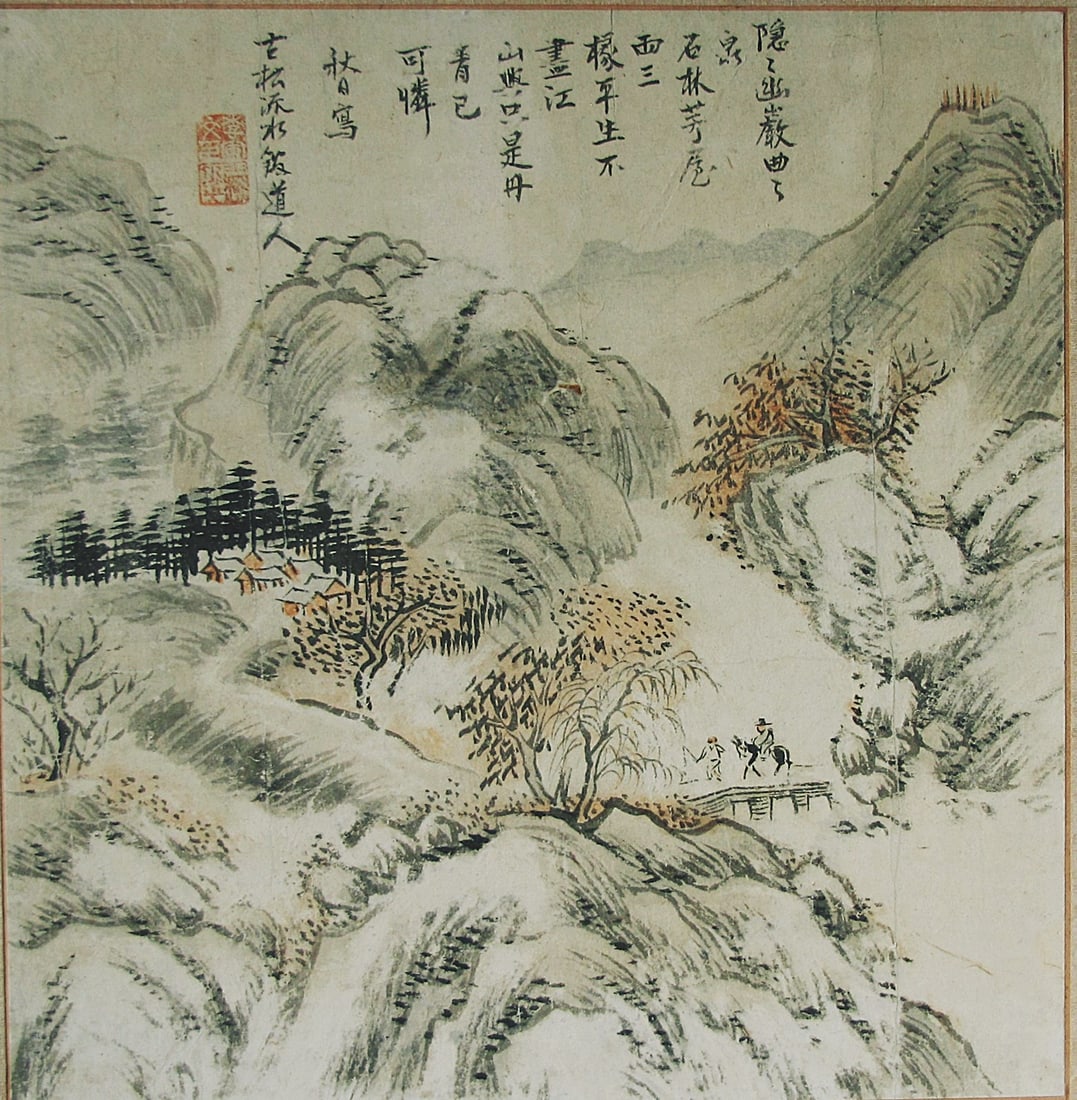 隱〻幽巖曲〻
泉
石林茅屋
兩三
椽平生不
盡江
山興只是丹
青已
可憐
秋日寫
古松流水館道人